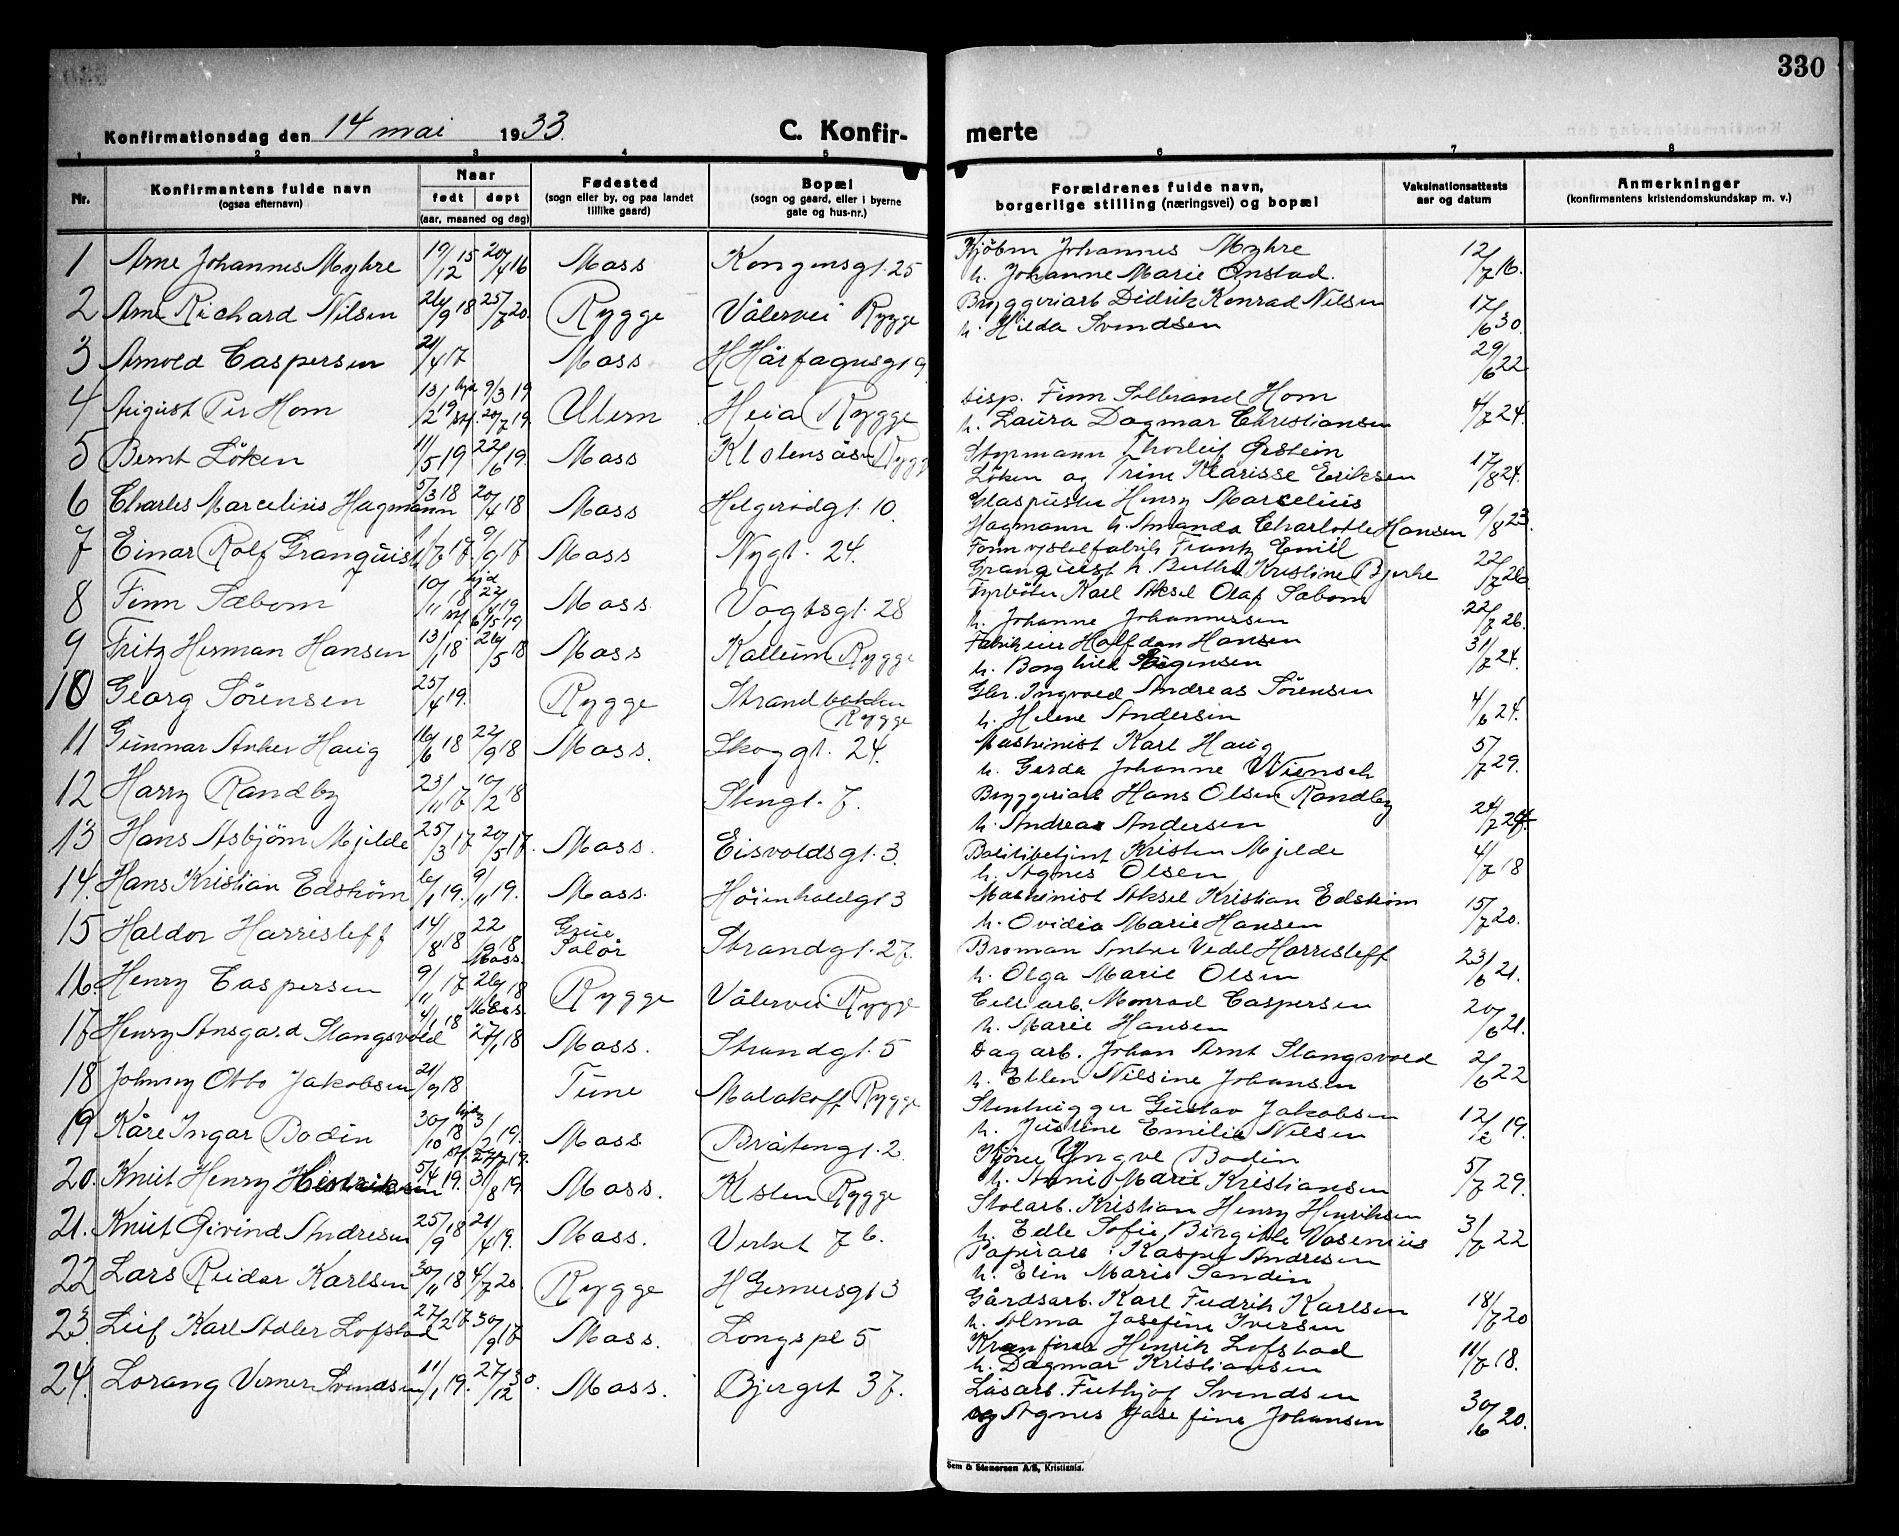 330
Konfirmationsdag den 14 mai 1933.
C. Konfir-
merte
1 2 3 4 5 6 7 8
Nr.
Konfirmantens fulde navn
(ogsaa efternavn)
Naar
født døpt
(aar, maaned og dag)
Fødested
(sogn eller by, og paa landet
tillike gaard)
Bopæl
(sogn og gaard, eller i byerne
gate og hus-nr.)
Forældrenes fulde navn,
borgerlige stilling (næringsvei) og bopæl
Vaksinationsattests
aar og datum
Anmerkninger
(konfirmantens kristendomskundskap m. v.)
1 Arne Johannes Myhre 19/12 15 20/4 16 Moss Kongensgt. 25 Kjøbm Johannes Myhre
h. Johanne Marie Onstad. 12/7 16.
2 Arne Richard Nilsen 26/9 18 25/7 20. Rygge Vålervei Rygge Bryggeriarb Didrik Konrad Nilsen
h. Hilda Svendsen 17/6 30.
3 Arnold Caspersen 21/4 17 Moss H Hårfagersgt 9 29/6 22
4 August Per Hom 13/2 19 hjd 9/3 19 stf. 20/7 19 Ullern Heia Rygge Disp. Finn Solbrand Hom
h. Laura Dagmar Christiansen 4/7 24.
5 Bernt Löken 11/5 19 22/6 19. Moss Rygge Styrmann Thorleif Ørstein
Löken og Trine Klarisse Eriksen 17/8 24.
6 Charles Marcelius Hagmann 5/3 18 20/4 18 Moss Helgerödgt. 10. Glaspuster Henry Marcelius
Hagmann h. Amanda Charlotte Hansen 9/8 23.
7 Einar Rolf Granquist 1/7 17. 9/9 17 Moss Nygt. 24. Frantz Emil
Granquist h. Berthe Kristine Bjerke 22/7 26
8 Finn Sæbom 10/11 18 hjd 22/4 19 stf 6/5 19 Moss Vogtsgt. 28 Fyrböter Karl Aksel Olaf Sæbom
h. Johanne Johannessen 22/7 26.
9 Fritz Herman Hansen 13/1 18. 26/5 18 Moss Kallum Rygge Halfdan Hansen
h. Borghild 31/7 24.
10 Georg Sörensen 25/4 19. Rygge Strandbakken
Rygge Gbr. Ingvald Andreas Sörensen
h. Helene Andersen 4/6 24.
11 Gunnar Anker Haug 16/6 18 22/9 18 Moss. Skoggt. 24. Maskinist Karl Haug
h. Gerda Johanne Wiensch 5/7 29.
12 Harry Randby 23/11 17 10/2 18 Stengt. 7. Bryggeriarb Hans Olsen Randby
h. Andrea Andersen 24/7 24.
13 Hans Asbjörn Mjelde 25/3 17 20/5 17. Moss. Eisvoldsgt. 3. Politibetjent Kristen Mjelde
h. Agnes Olsen 4/7 18
14. Hans Kristian Edström 6/1 19. 9/11 19. Moss. Höienholdgt 3 Maskinist Aksel Kristian Edström
h. Ovidia Marie Hansen 15/7 20.
15 Haldor Harrisleff 14/8 18 22/9 18 Grue
Solör Strandgt. 27. Vedel Harrisleff
h. Olga Marie Olsen 23/6 21.
16. Henry Caspersen 9/11 17 Moss. 26/5 18 Rygge Vålervei Rygge Cell arb. Monrad Caspersen
h. Marie Hansen 20/6 21.
17 Henry Ansgard Slangsvold 4/1 18 Moss. 27/1 18 Moss. Strandgt. 5 Dagarb. Johan Arnt Slangsvold
h. Ellen Nilsine Johansen 2/6 22
18 Johnny Otto Jakobsen 21/9 18 Tune Malakoff Rygge Stenhugger Gustav Jakobsen
h. Justine Emilie Nilsen 12/12 19.
19 Kåre Ingar Bodin 30/10 18 hjd 3/1 19. stf 27/7 19. Moss Bråtengt. 2. Kjörer Yngve Bodin
h. Anni Marie Kristiansen 5/7 29.
20. Knut Henry Henriksen 5/4 19. 31/8 19 Moss. Rygge Stolarb. Kristian Henry Henriksen
h. Edle Sofie Birgitte Vasenius 3/7 22
21. Knut Eivind Andresen 25/9 18 21/4 19. Moss. Verket 76. Papirarb. Kasper Andresen
h. Elin Marie Sandin
22 Lars Reidar Karlsen 30/11 18 4/7 20. Rygge H Gernersgt 3 Gårdsarb. Karl Fredrik Karlsen
h. Alma Josefine Iversen 18/7 20
23. Leif Karl Adler Lofstad 27/2 17 30/9 17 Moss. Longspl 5 Kranförer Henrik Lofstad
h. Dagmar Kristiansen 11/7 18.
24. Lorang Verner Svendsen 11/1 19. 27/12 30. Moss. Bjerget 37. Løsarb. Frithjof Svendsen
og Agnes Josefine Johansen 30/6 20.
Sem & Stenersen A/S, Kristiania.